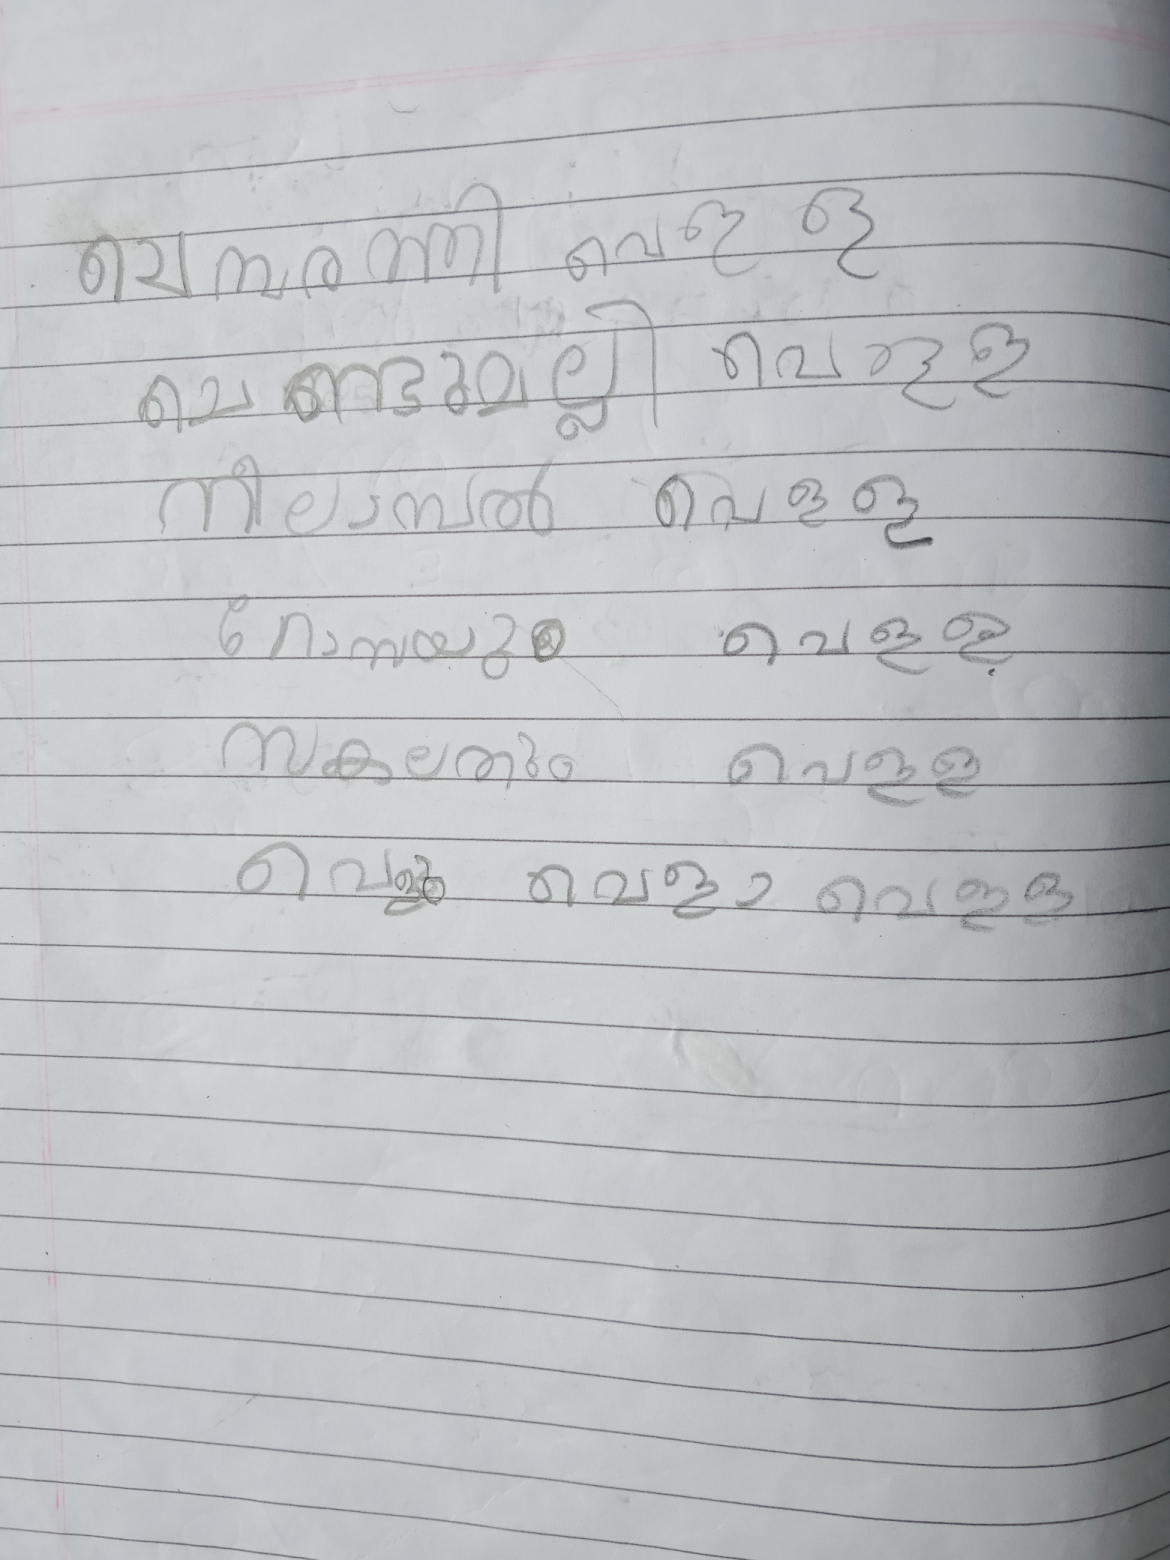 ചെമ്പരത്തി വെള്ള
ചെണ്ടുമല്ലി വെള്ള
നീലാമ്പൽ വെള്ള
റോസയും വെള്ള
സകലതും വെള്ള
വെള്ള വെള്ള